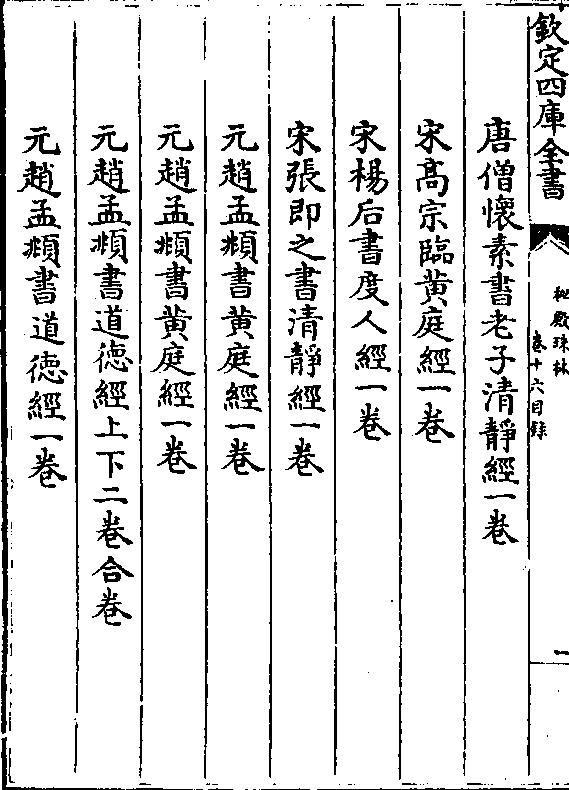 欽定四庫全書
祕殿珠林
卷十六目錄
一
唐僧懷素書老子清靜經一卷
宋高宗臨黃庭經一卷
宋楊后書度人經一卷
宋張即之書清靜經一卷
元趙孟頫書黃庭經一卷
元趙孟頫書黃庭經一卷
元趙孟頫書道德經上下二卷合卷
元趙孟頫書道德經一卷